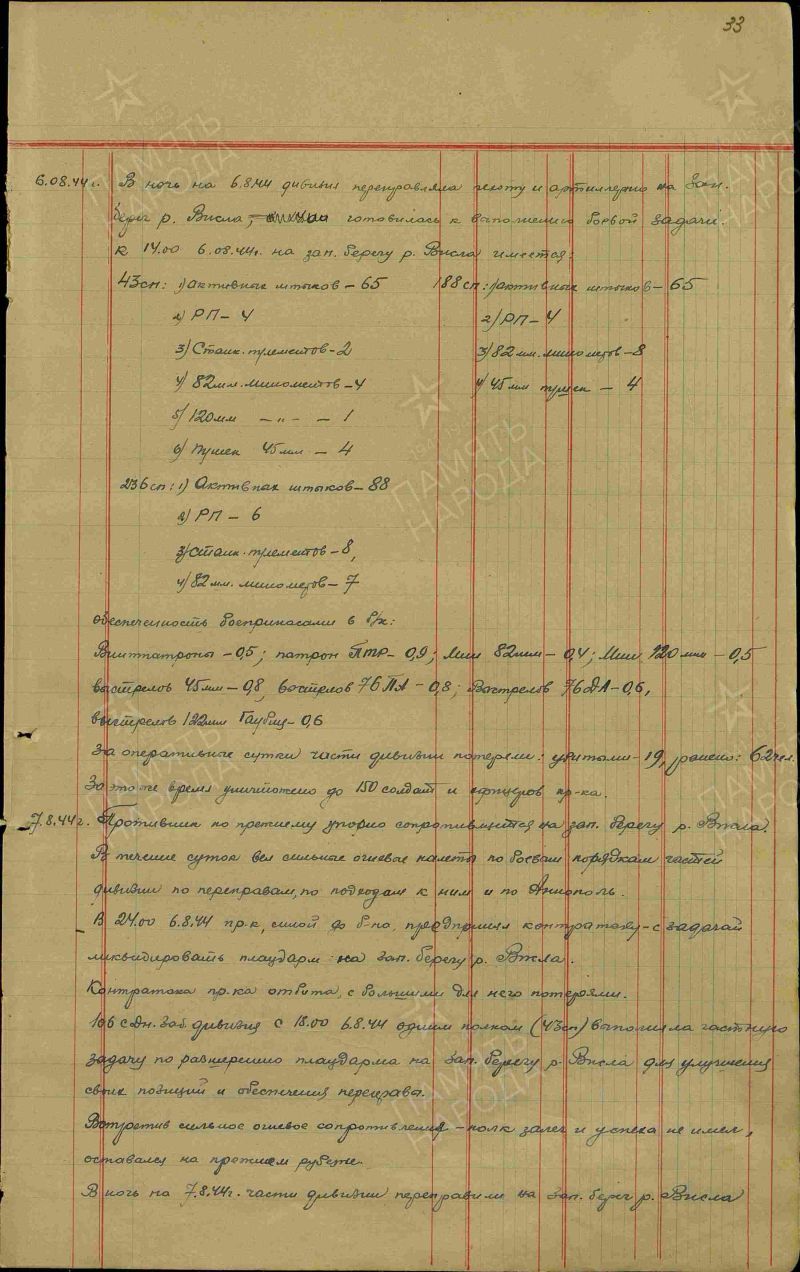 33
6.08.44г. В ночь на 6.8.44 дивизия переправляла пехоту и артиллерию на зап.
берег р. Висла, готовилась к выполнению боевой задачи.
к 14.00 6.08.44г. на зап. берегу р. Висла имеется:
43сп: 1) активных штыков – 65 188сп: 1) активных штыков – 65
2) РП – 4 2) РП – 4
3) Станк. пулеметов – 2 3) 82 мм. минометов – 8
4) 82мм. минометов – 4 4) 45мм пушек – 4
5) 120мм – „ – – 1
6) Пушек 45мм – 4
236сп: 1) Активных штыков – 88
2) РП – 6
3) станк. пулеметов – 8,
4) 82 мм. минометов – 7
обеспеченность боеприпасами в б/к:
Винтпатроны – 0,5; патрон ПТР – 0,9; Мин 82мм – 0,4; Мин 120 мм – 0,5
выстрелов 45мм – 0,8, выстрелов 76 ПА – 0,8; Выстрелов 76 ДА – 0,6,
выстрелов 122мм Гаубиц – 0,6
За оперативные сутки части дивизии потеряли: убитыми – 19, ранено: 62 чел.
За это же время уничтожено до 150 солдат и офицеров пр-ка.
7.8.44г. Противник по прежнему упорно сопротивляется на зап. берегу р. Висла.
В течение суток вел сильные огневые налеты по боевым порядкам частей
дивизии по переправам, по подходам к ним и по Аннополь.
В 24.00 6.8.44 пр-к, силой до б-на, предпринял контратаку – с задачей
ликвидировать плацдарм на зап. берегу р. Висла.
Контратака пр-ка отбита, с большими для него потерями.
106 с Дн. Заб. дивизия с 18.00 6.8.44 одним полком (43сп) выполняла частную
задачу по расширению плацдарма на зап. берегу р. Висла для улучшения
своих позиций и обеспечения переправы.
Встретив сильное огневое сопротивление – полк залег и успеха не имел,
оставался на прежнем рубеже.
В ночь на 7.8.44г. части дивизии переправили на зап. берег р. Висла